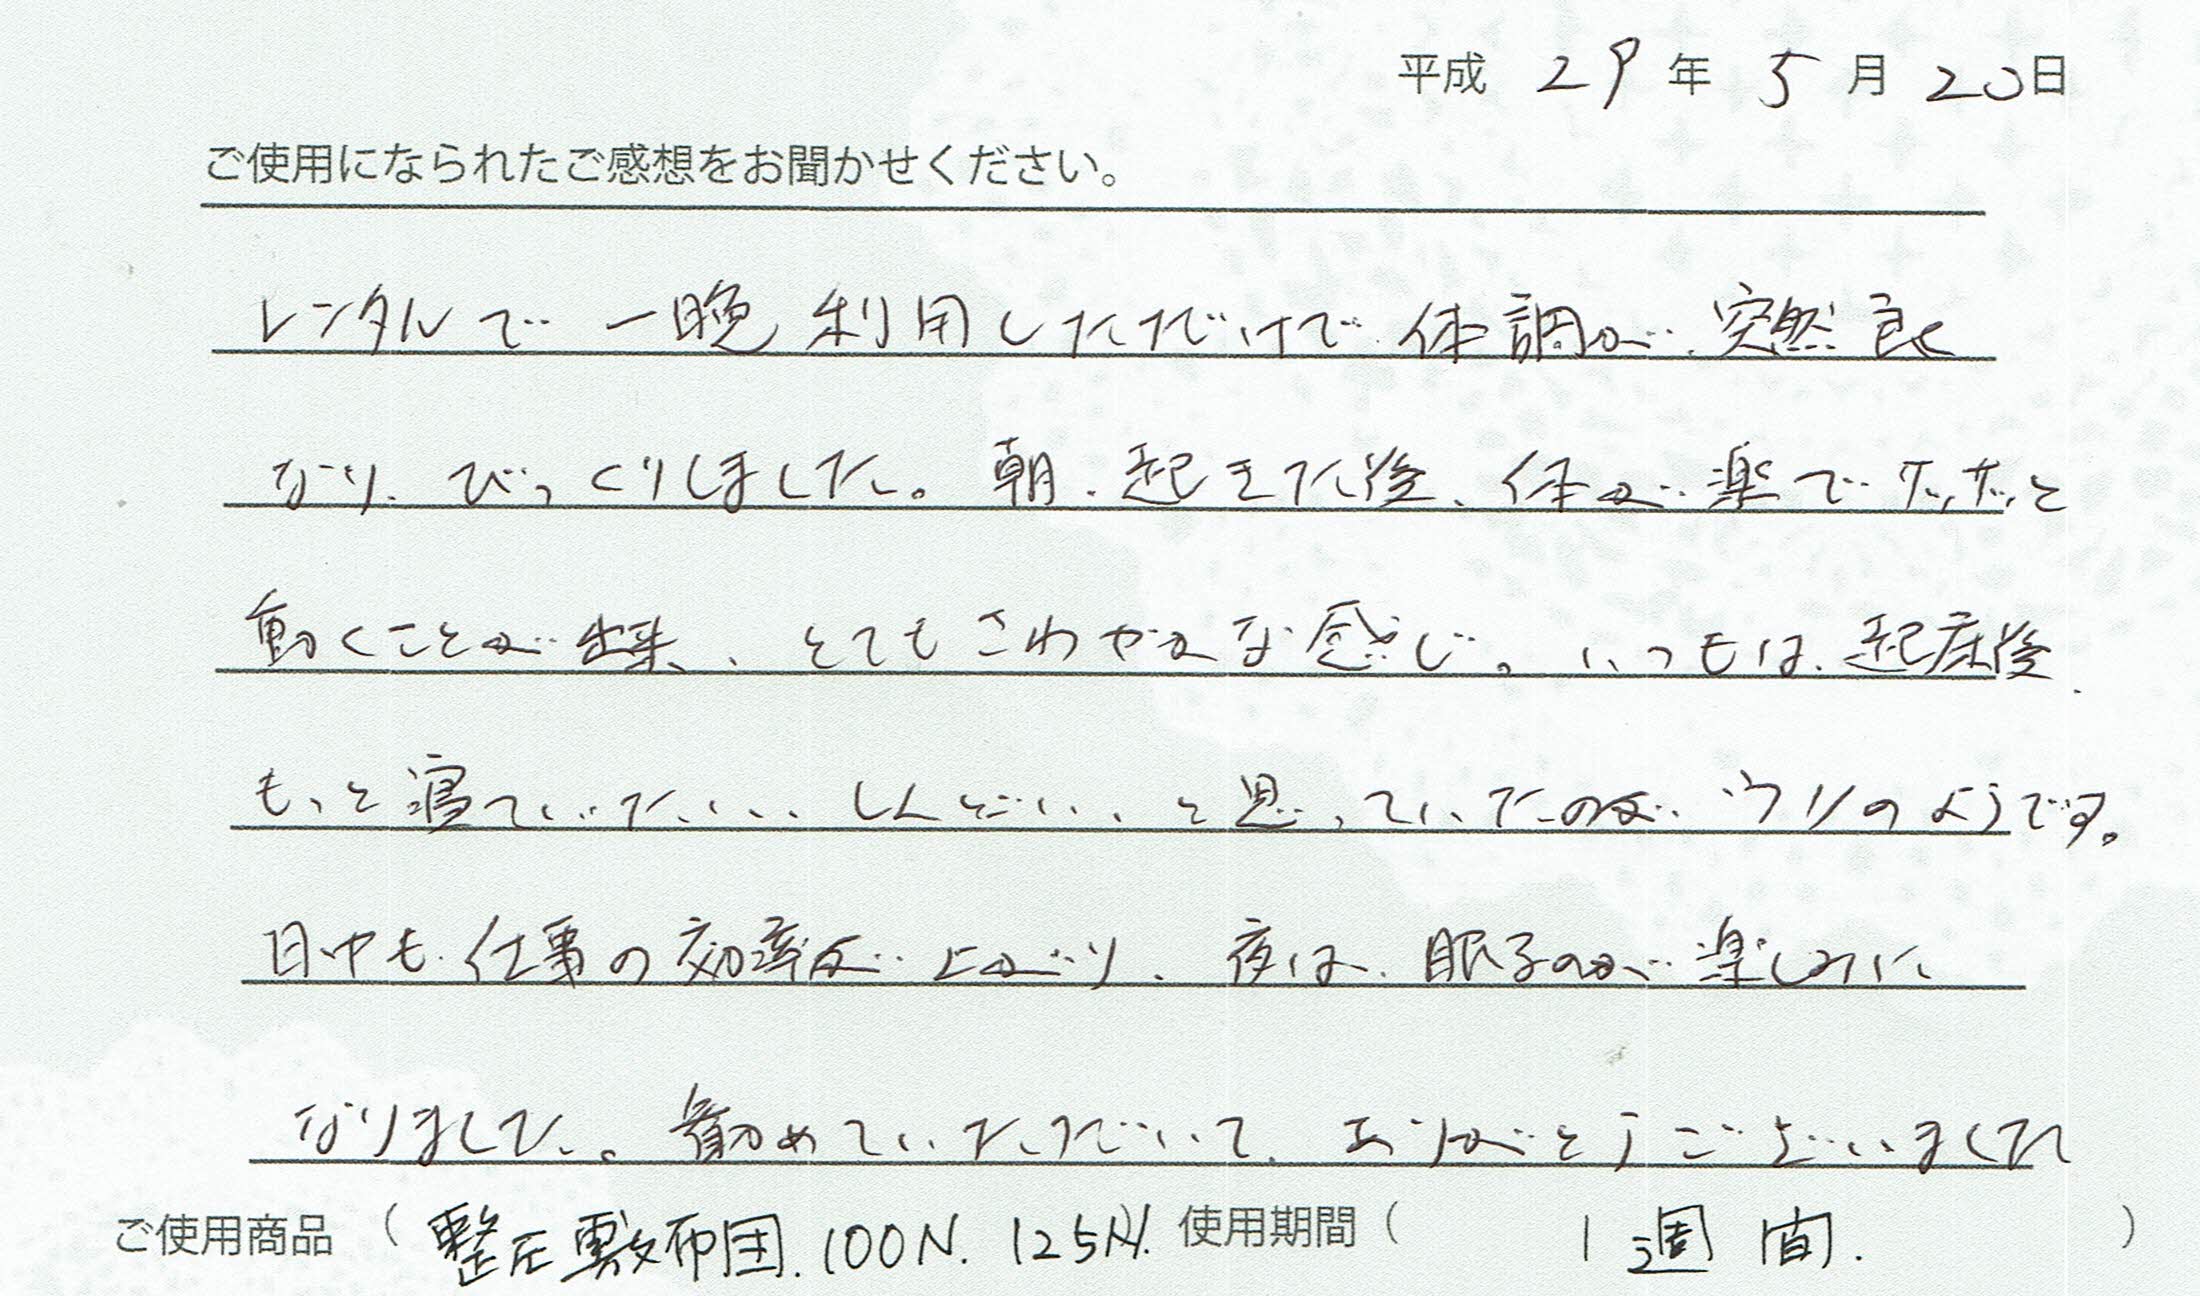 平成 29 年 5 月 20 日
ご使用になられたご感想をお聞かせください。
レンタルで一晩利用しただけで体調が、突然良く
なり、びっくりしました。朝、起きた後、体が楽でサッサッと
動くことが出来、とてもさわやかな感じ。いつもは、起床後、
もっと寝ていたい、しんどい、と思っていたのが、ウソのようです。
日中も、仕事の効率が上がり、夜は、眠るのが楽しみに
なりました。勧めていただいて、ありがとうございました
ご使用商品 ( 整圧敷布団. 100N. 125N. 使用期間 ( 1週間. )